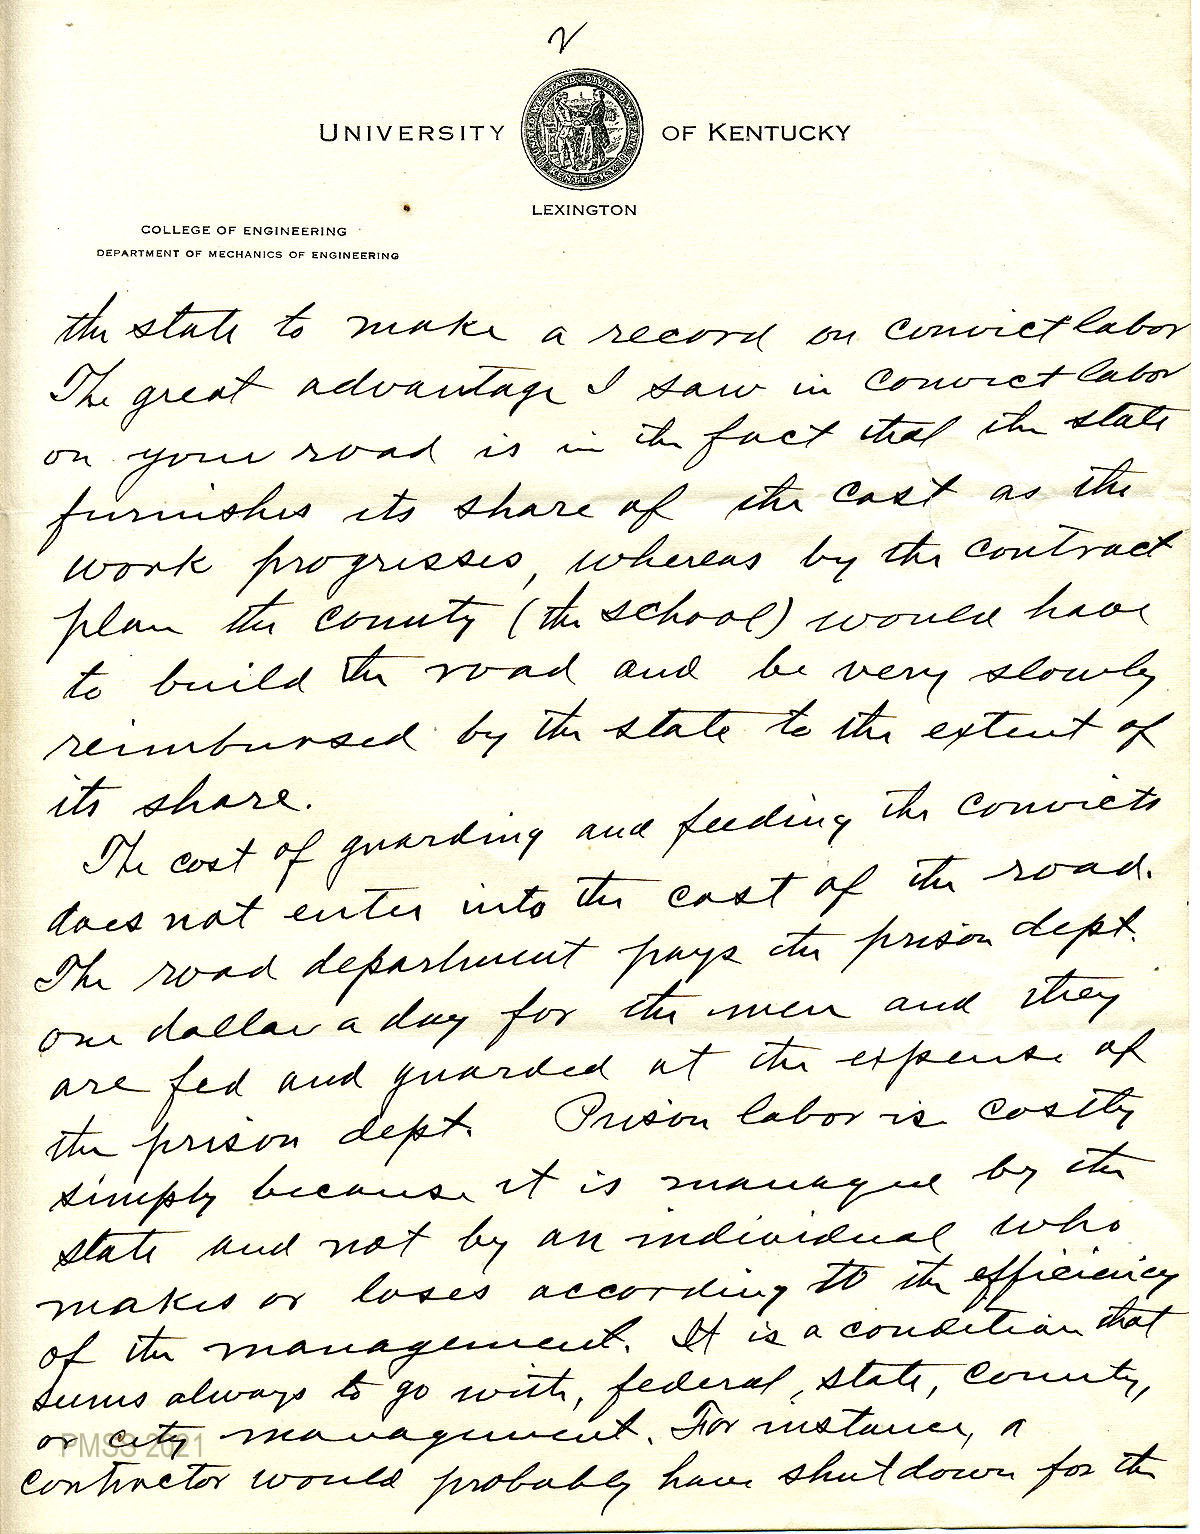 2
UNIVERSITY OF KENTUCKY
LEXINGTON
COLLEGE OF ENGINEERING
DEPARTMENT OF MECHANICS OF ENGINEERING
the state to make a record on convict labor
The great advantage I saw in convict labor
on your road is in the fact that the state
furnishes its share of the cost as the
work progresses, whereas by the contract
plan the county (the school) would have
to build the road and be very slowly
reimbursed by the state to the extent of
its share.
The cost of guarding and feeding the convicts
does not enter into the cost of the road.
The road department pays the prison dept.
one dollar a day for the men and they
are fed and guarded at the expense of
the prison dept. Prison labor is costly
simply because it is managed by the
state and not by an individual who
makes or loses according to the efficiency
of the management. It is a condition that
seems always to go with, federal, state, county,
or city management. For instance, a
PMSS 2021
contractor would probably have shut down for the